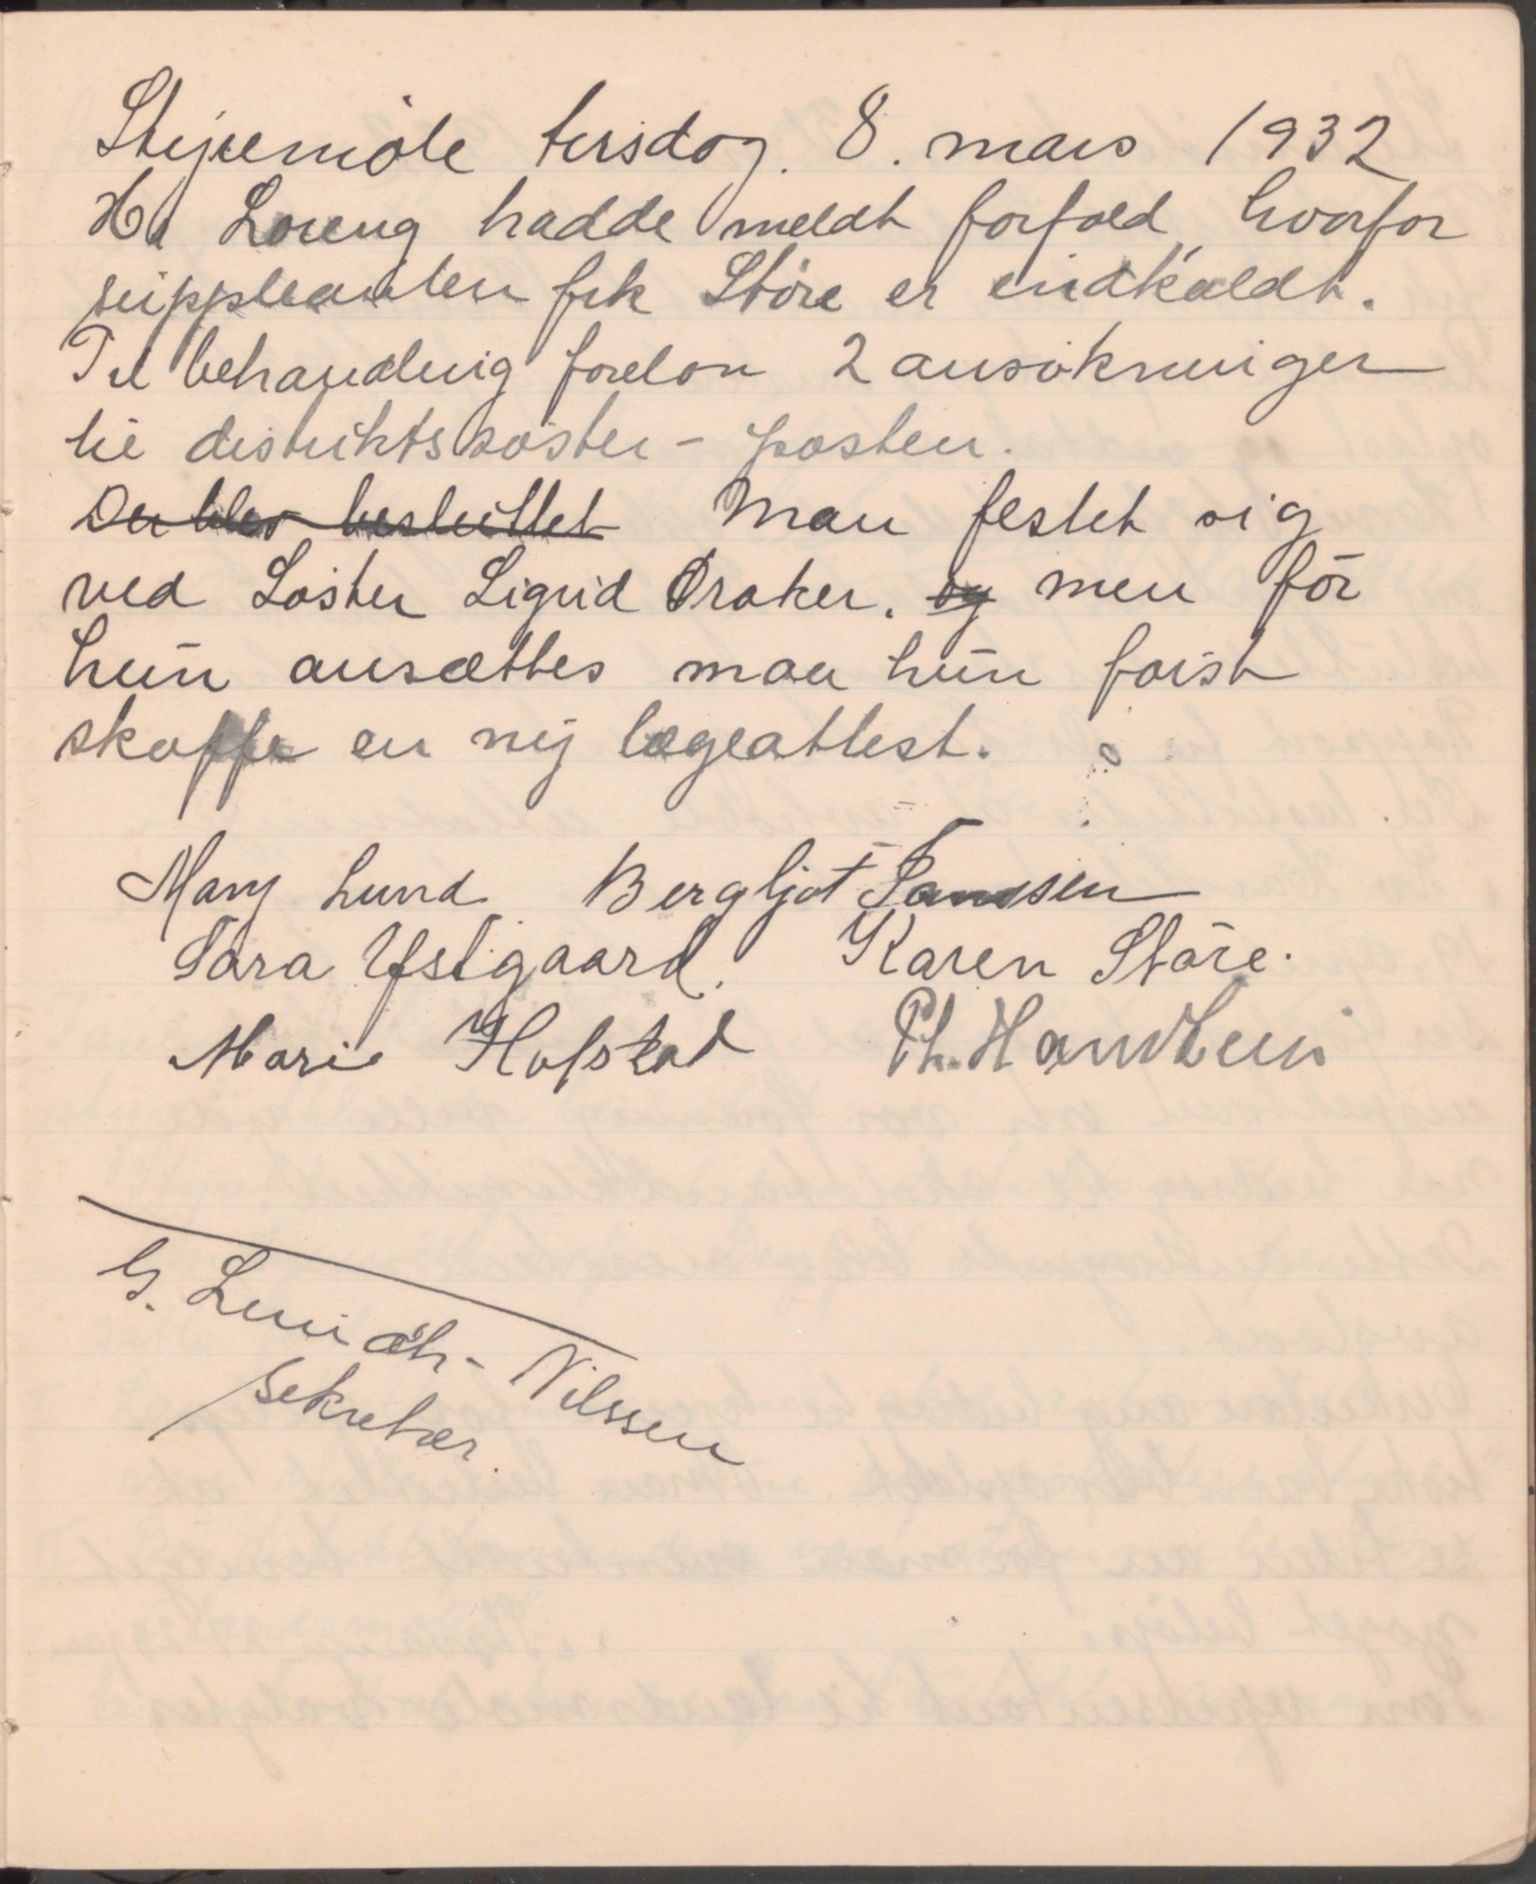 Styremöte tirsdag. 8. mars 1932
Hr Loreng hadde meldt forfald, hvorfor
suppleanten frk Störe er indkaldt.
Til behandling forelaa 2 ansökninger
til distriktssöster - posten.
Der blev besluttet Man festet sig
ved Söster Sigrid Draker. og men för
hun ansættes maa hun först
skaffe en ny lægeattest.
Mary Lund Bergljot
Sara Ystgaard. Karen Störe.
Marie Hofstad Ph.
G. Nilssen
sekretær.